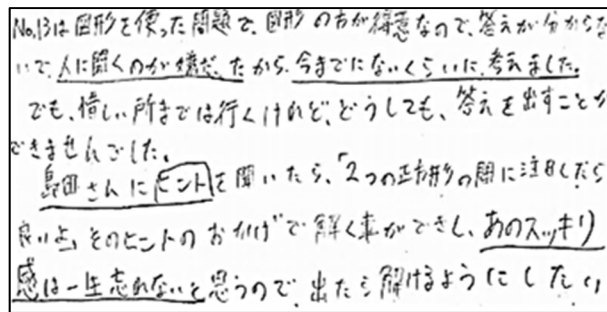 No.13は図形を使った問題で、図形の方が得意なので、答えが分からな
いで、人に聞くのが嫌だ。だから、今までにないくらいに、考えました。
でも、惜しい所までは行くけれど、どうしても、答えを出すことが
できませんでした。
島田さんにヒントを聞いたら、「2つの正方形の間に注目したら
良いよ」そのヒントのおかげで解く事ができし、あのスッキリ
感は一生忘れないと思うので、出たら解けるようにしたい